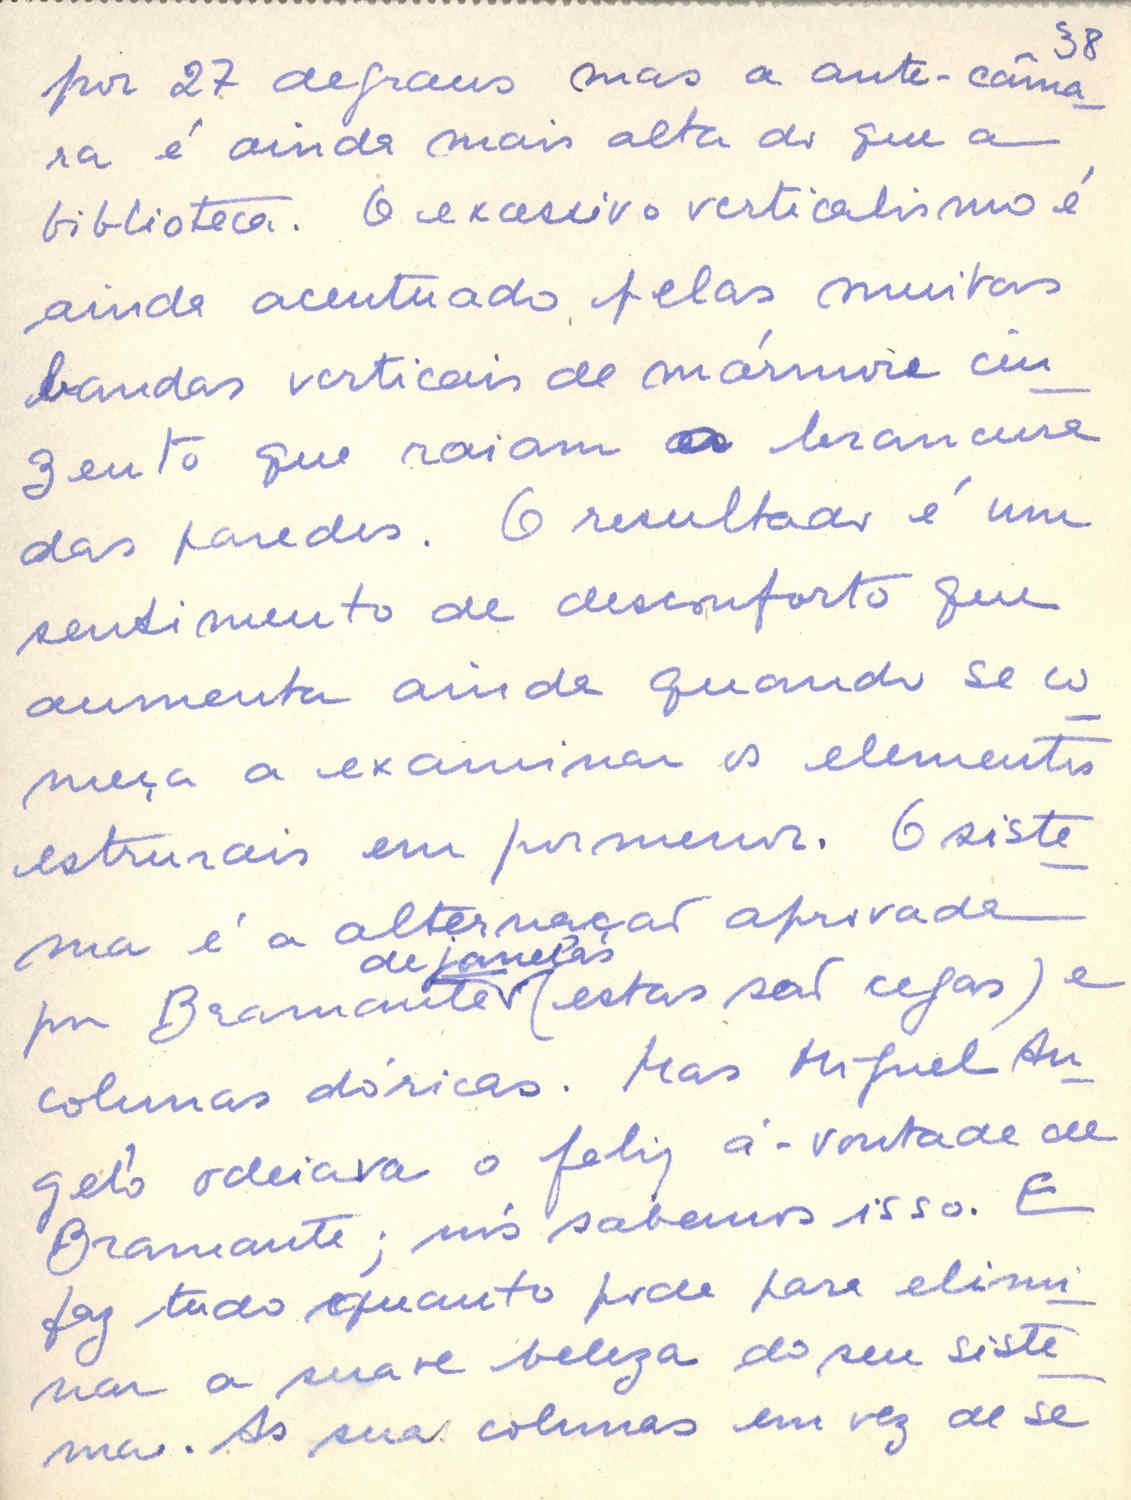 38
por 27 degraus mas a ante-câma_
ra é ainda mais alta do que a
biblioteca. O excessivo verticalismo é
ainda acentuado pelas muitas
bandas verticais de mármore cin_
zento que raiam a brancura
das paredes. O resultado é um
sentimento de desconforto que
aumenta ainda quando se co_
meça a examinar os elementos
estrurais em pormenor. O siste_
ma é a alternação aprovada
de janelas
por Bramante (estas são cegas) e
colunas dóricas. Mas Miguel An_
gelo odeiava o feliz á-vontade de
Bramante; nós sabemos isso. E
faz tudo quanto pode para elimi_
nar a suave beleza do seu siste_
ma. As sua colunas em vez de se